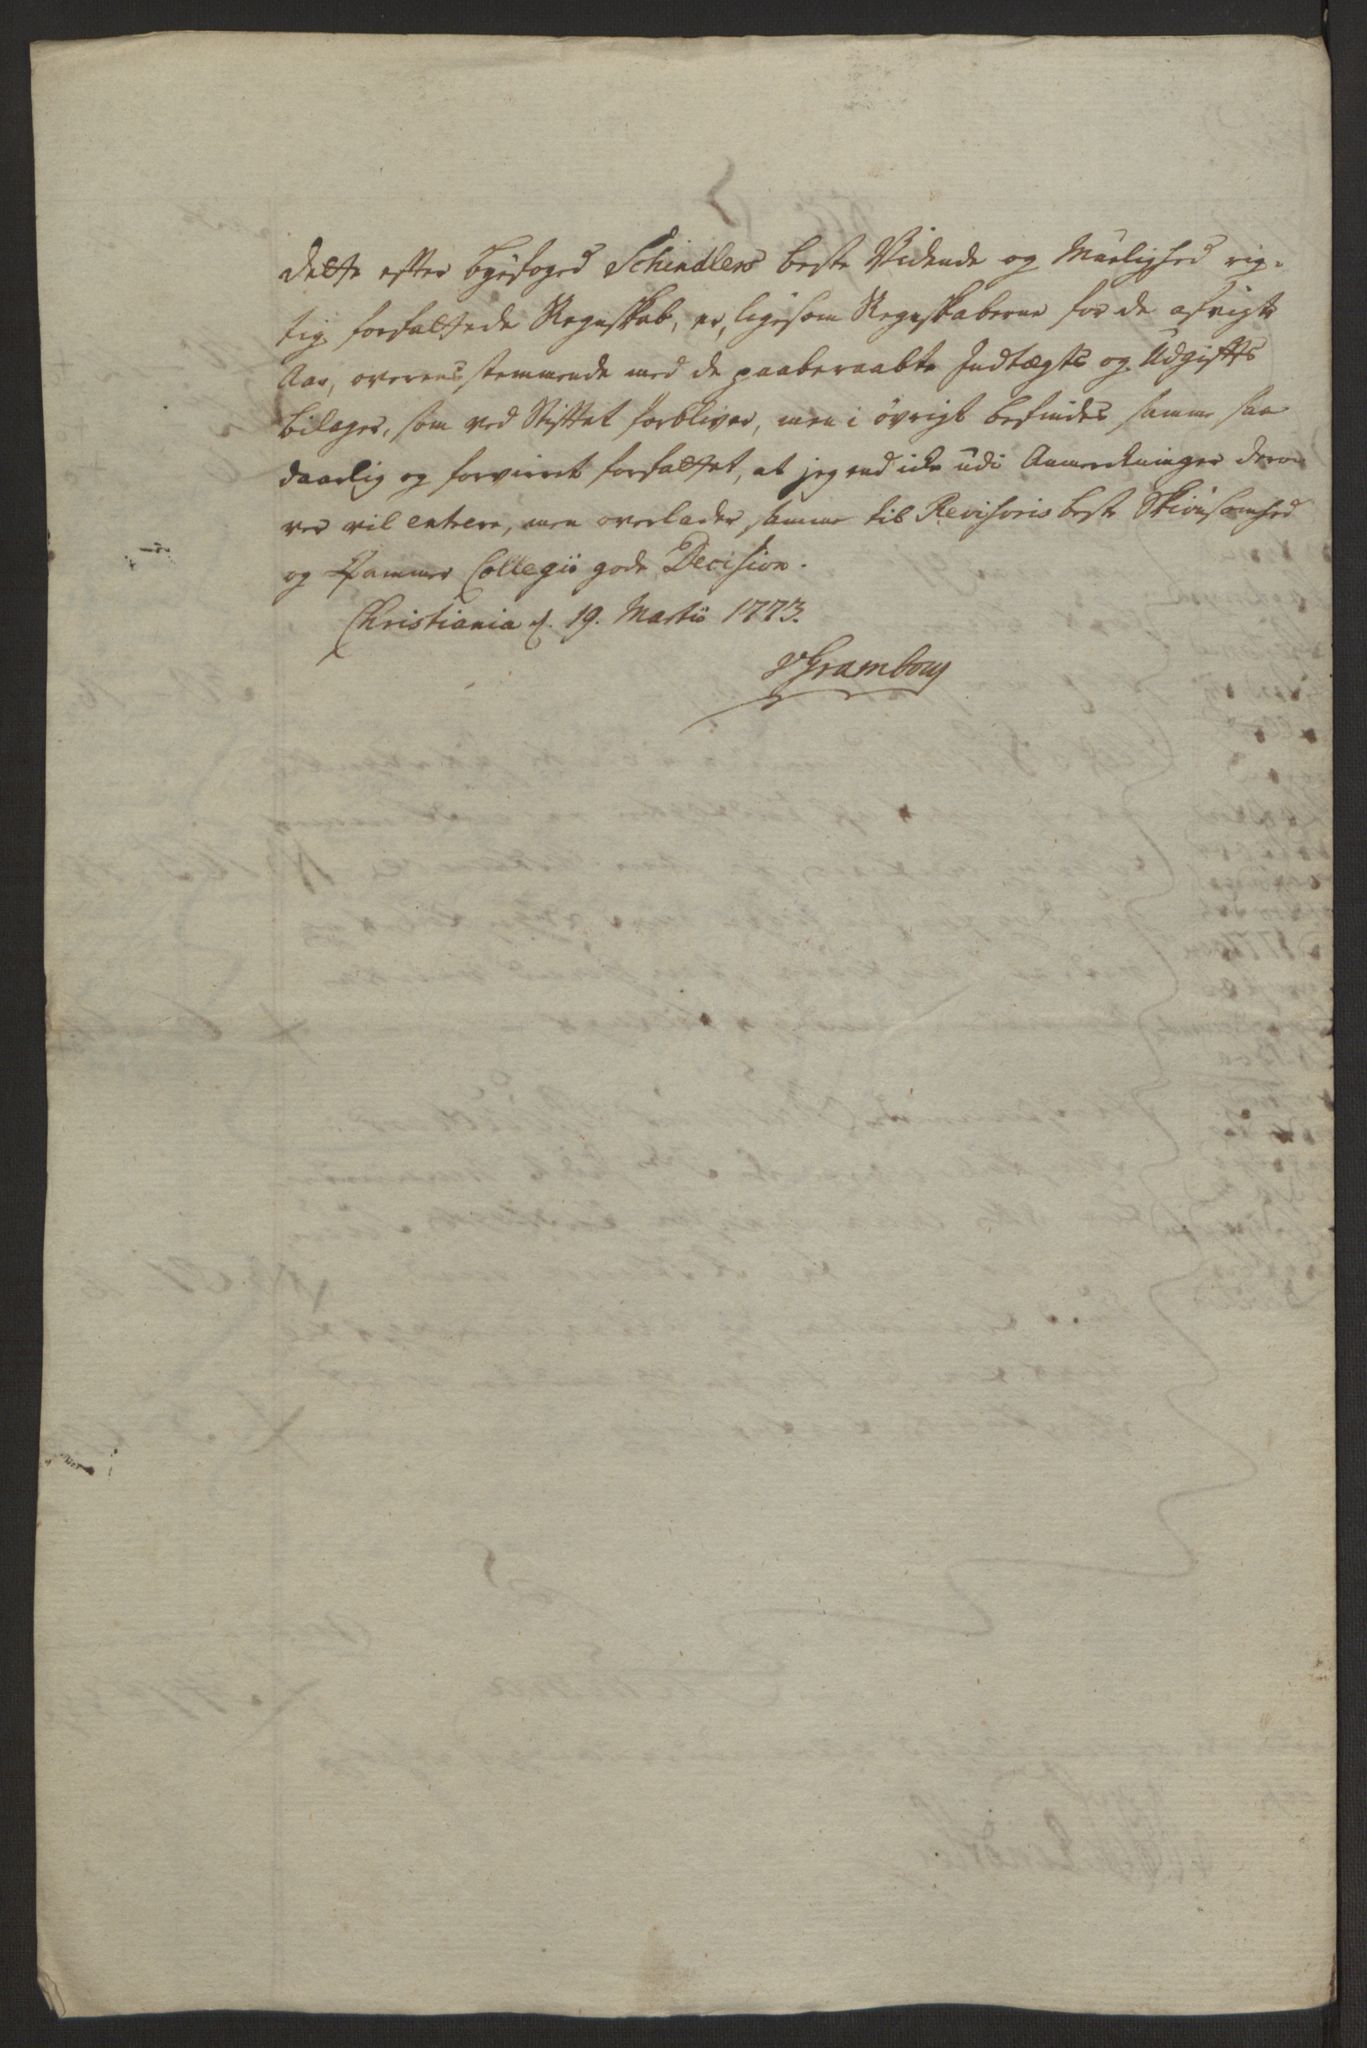 dette efter byefoged Schindlers beste Vidende og Muelighed rig-
tig forfattede Regnskab, er, ligesom Regnskaberne for de afvigte
Aar, overensstemmende med de paaberaabte Indtægts og Udgiftts
bilager, som ved Stiftet forbliver, men i øvrigt befindes samme saa
daarlig og forvirret forfattet, at jeg end icke udi Anmerckninger dero-
ver vil entrere, men overlader samme til Revisoris beste Skiønsomhed
og Kammer Collegii gode Decision.
Christiania d. 19. Martii 1773.